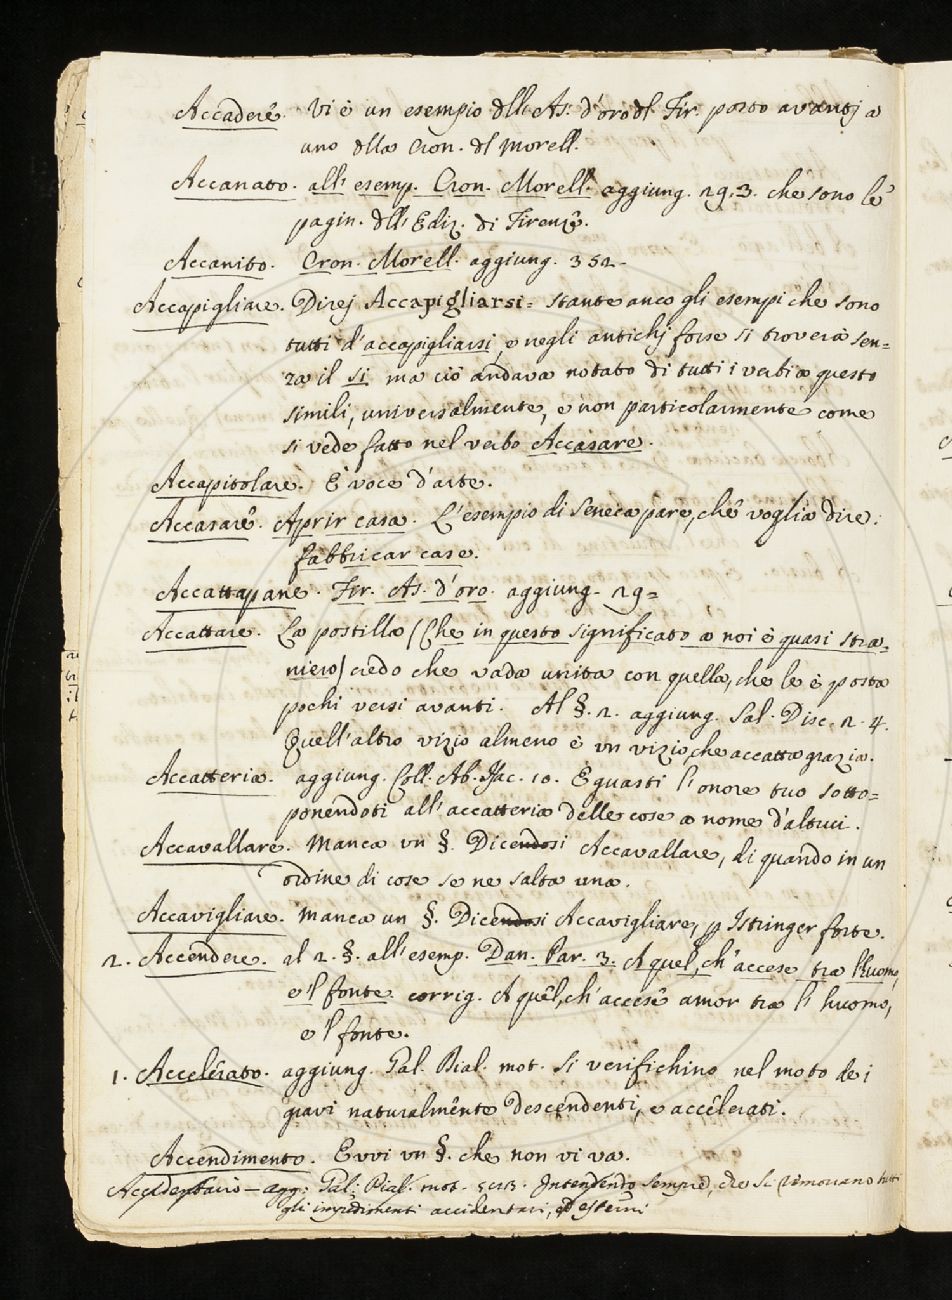 Accadere. Vi è un esempio dll' As. d'oro dl Fir. posto avantj a
uno dlla Cron. dl Morell.
Accanato. all' esemp. Cron. Morell. aggiung. 29.3. che sono le
pagin. dll' Ediz. di Firenze.
Accanito. Cron. Morell. aggiung. 352.
Accapigliare. Direj Accapigliarsi = stante anco gli esempi che sono
tutti d'accapigliarsi, e negli antichj forse si troverà sen=
za il si ma ciò andava notato di tutti i verbi a questo
simili, universalmente, e non particolarmente come
si vede fatto nel verbo Accasare.
Accapitolare. È voce d'arte.
Accasare. Aprir casa. L'esempio di Seneca pare, che voglia dire:
fabbricar case.
Accattapane. Fir. As. d'oro. aggiung. 29=
Accattare. La postilla (Che in questo significato a noi è quasi stra=
niero) credo che vada unita con quella, che le è posta
pochi versi avanti. Al §. 2. aggiung. Sal. Disc. 2. 4.
Quell'altro vizio almeno è un vizio, che accatta grazia.
Accatteria. aggiung. Coll. Ab. Isac. 10. E guasti l'onore tuo sotto=
ponendoti all' accatteria delle cose a nome d'altrui.
Accavallare. Manca un §. Dicendosi Accavallare, di quando in un
ordine di cose se ne salta una.
Accavigliare. Manca un §. Dicendosi Accavigliare, p Istringer forte.
2. Accendere. al 2. §. all' esemp. Dan. Par. 3. A quel, ch' accese tra l'huomo,
e 'l fonte corrig. A quel, ch' accese amor tra l' huomo,
e 'l fonte.
1. Accelerato. aggiung. Gal. Bial. mot. Si verifichino nel moto dei
gravi naturalmente descendenti, e accelerati.
Accendimento. Evvi un §. che non vi va.
Accidentario - agg: Gal: Dial. mot. Intendendo sempre, che si rimovano tutti
gli impedimenti accidentari, ed esterni